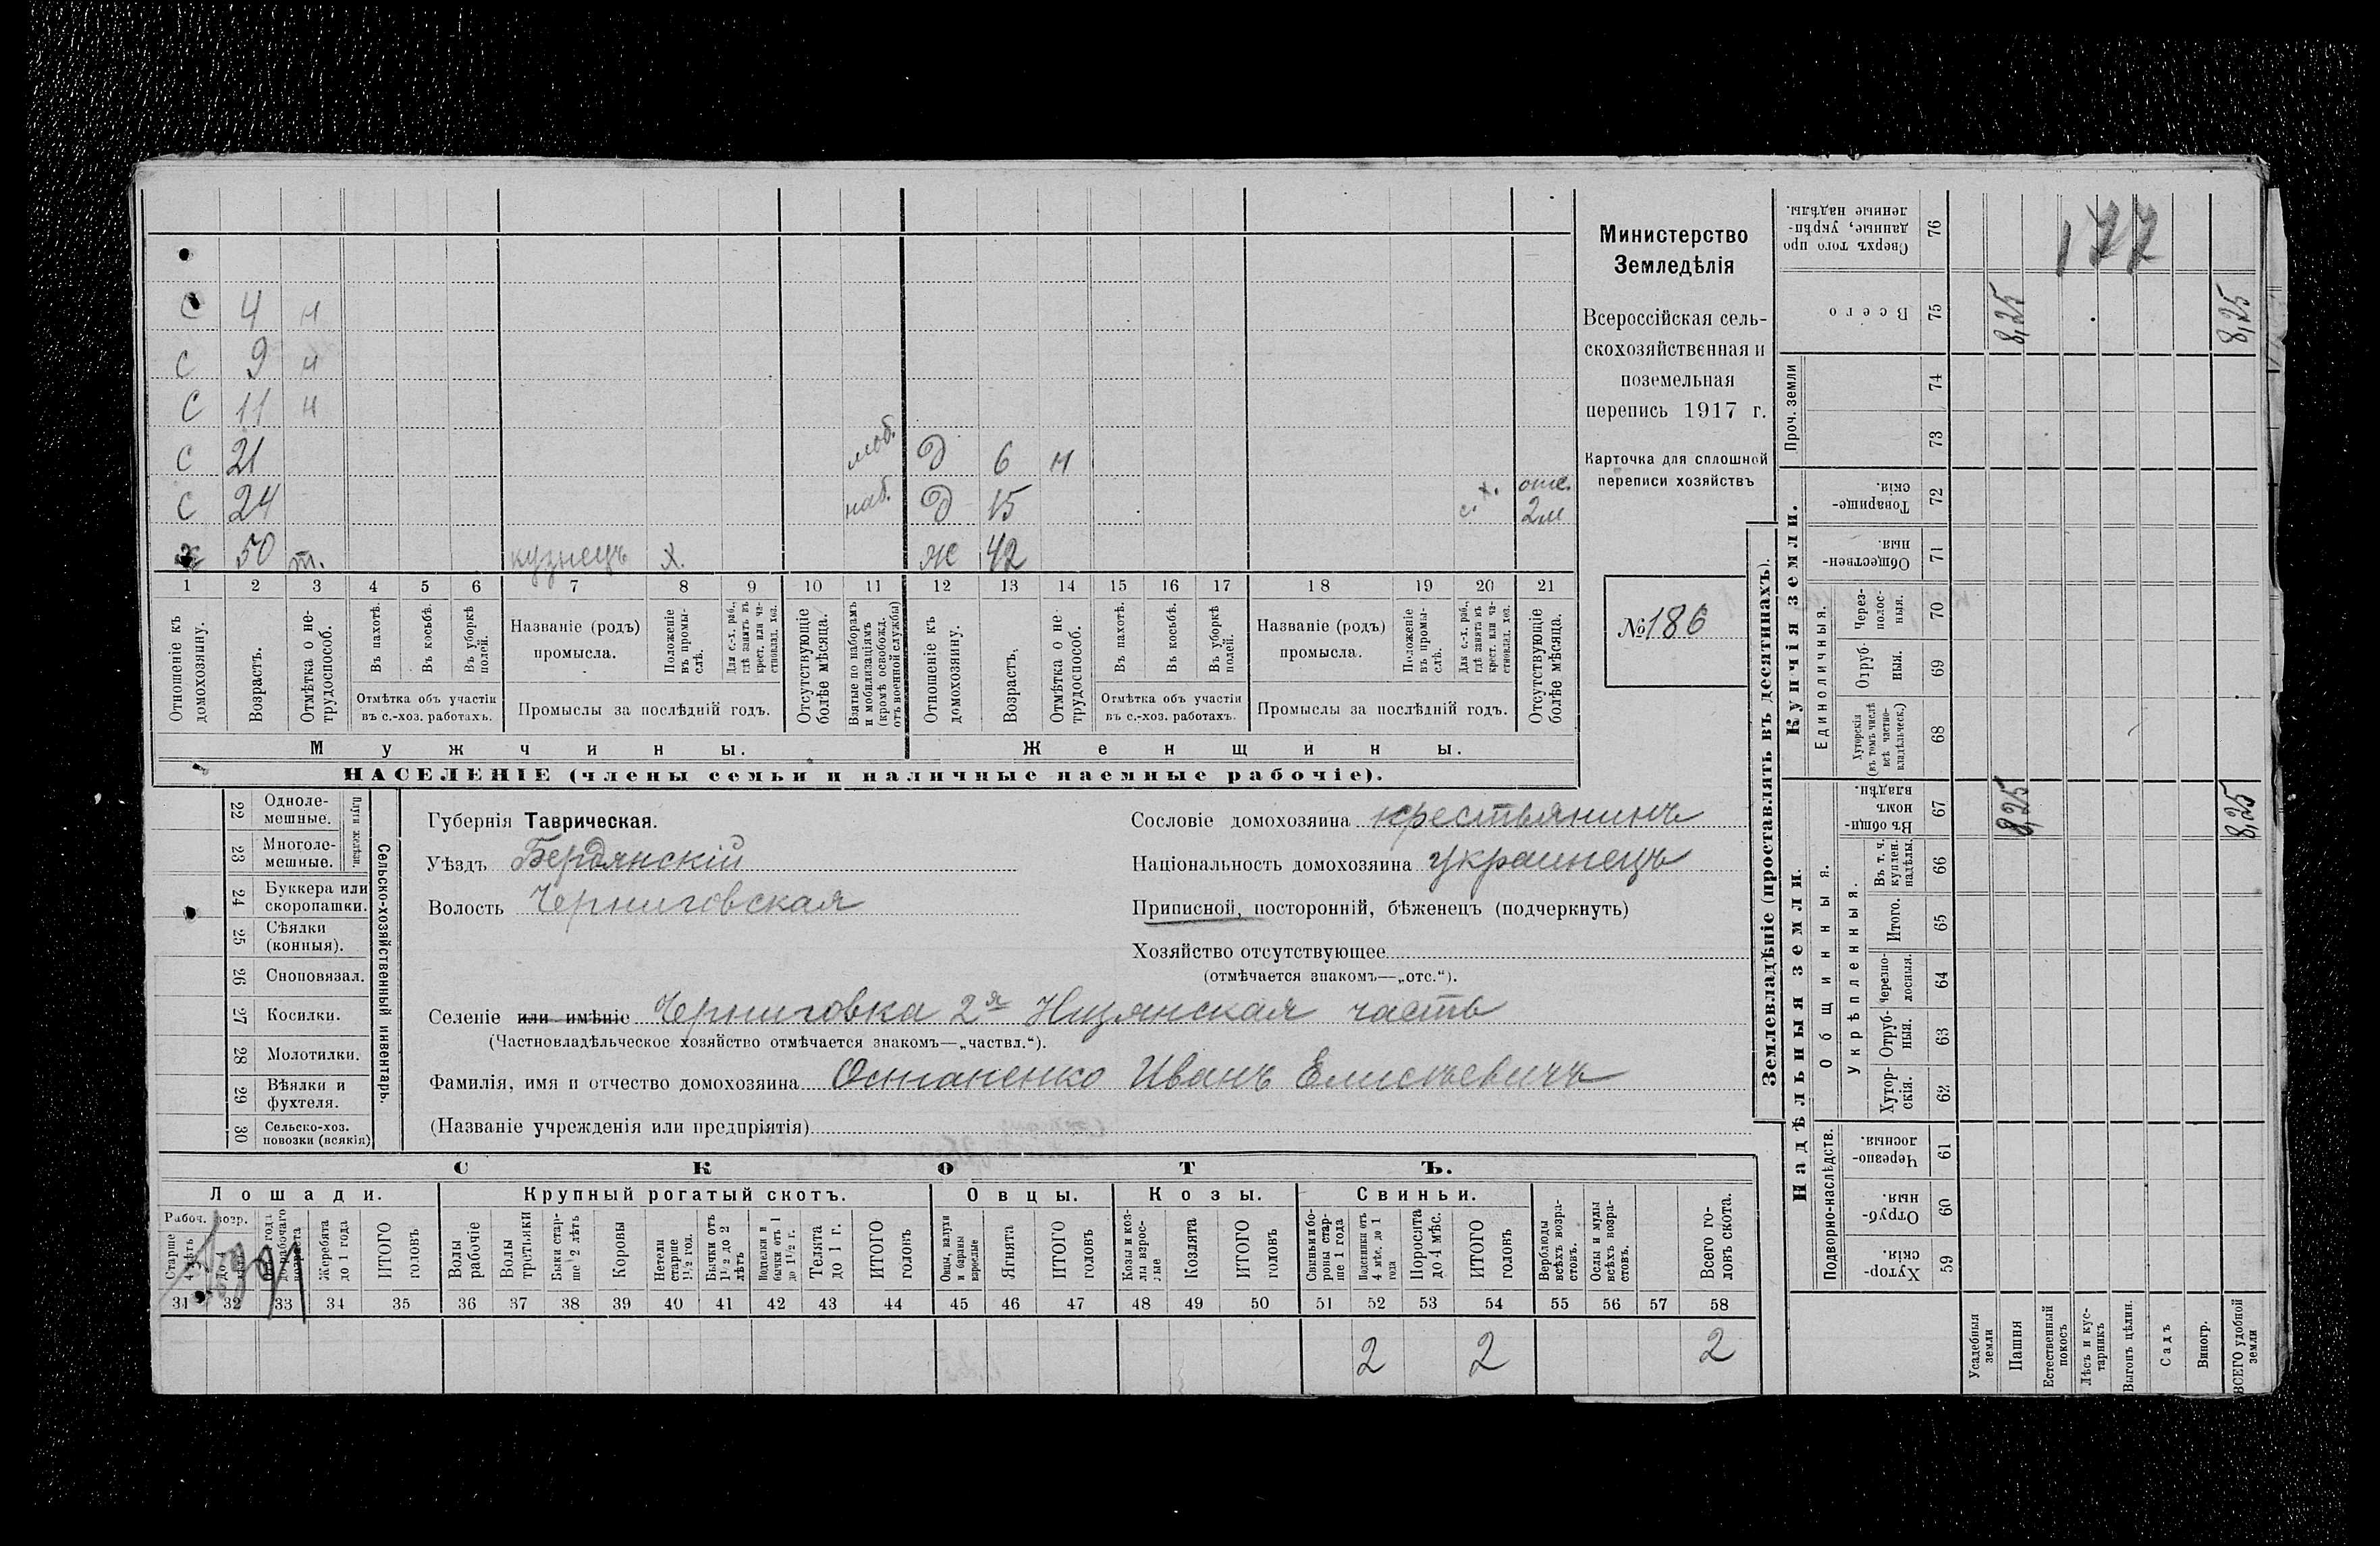 Министерство
Земледѣлія
Всероссійская сель-
скохозяйственная и
поземельная
перепись 1917 г.
Карточка для сплошной
переписи хозяйствъ
№ 186
177
С 4 н
С 9 н
С 11 н
С 21 моб. Д 6 н
С 24 наб. Д 15 с. х. отс. 2м
х 50 т. кузнецъ х. ж 42
1 2 3 4 5 6 7 8 9 10 11 12 13 14 15 16 17 18 19 20 21
Отношеніе къ домохозяину.
Возрастъ.
Отмѣтка о не-трудоспособ.
Въ пахотѣ.
Въ косьбѣ.
Въ уборкѣ полей.
Отмѣтка объ участіи
въ с.-хоз. работахъ.
Названіе (родъ)
промысла.
Положеніе въ промы-слѣ.
Для с.-х. раб., гдѣ занятъ въ крест. или ча-стновлад. хоз.
Промыслы за послѣдній годъ.
Отсутствующіе болѣе мѣсяца.
Взятые по наборамъ и мобилизаціямъ (кромѣ освобожд. отъ военной службы)
Отношеніе къ домохозяину.
Возрастъ.
Отмѣтка о не-трудоспособ.
Въ пахотѣ.
Въ косьбѣ.
Въ уборкѣ полей.
Отмѣтка объ участіи
въ с.-хоз. работахъ.
Названіе (родъ)
промысла.
Положеніе въ промы-слѣ.
Для с.-х. раб., гдѣ занята въ крест. или ча-стновлад. хоз.
Промыслы за послѣдній годъ.
Отсутствующіе болѣе мѣсяца.
Мужчины.
Женщины.
НАСЕЛЕНІЕ (члены семьи и наличные наемные рабочіе).
Сельско-хозяйственный инвентарь.
Плуги желѣзн.
22 Одноле-мешные.
23 Многоле-мешные.
24 Буккера или скоропашки.
25 Сѣялки (конныя).
26 Сноповязал.
27 Косилки.
28 Молотилки.
29 Вѣялки и фухтеля.
30 Сельско-хоз. повозки (всякія)
Губернія Таврическая.
Уѣздъ Бердянскій
Волость Черниговская
Сословіе домохозяина крестьянинъ
Національность домохозяина украинецъ
Приписной, посторонній, бѣженецъ (подчеркнуть)
Хозяйство отсутствующее
(отмѣчается знакомъ—„отс.“).
Селеніе или имѣніе Черниговка 2я Нцянская часть
(Частновладѣльческое хозяйство отмѣчается знакомъ—„частвл.“).
Фамилія, имя и отчество домохозяина Остапенко Иванъ Елисѣевичъ
(Названіе учрежденія или предпріятія)
СКОТЪ.
Лошади.
Крупный рогатый скотъ.
Овцы.
Козы.
Свиньи.
Рабоч. возр.
Старше 4 лѣтъ
до 4 лѣтъ
года до рабочаго возраста
Жеребята до 1 года
ИТОГО головъ
Волы рабочіе
Волы третьяки
Быки стар-ше 2 лѣтъ
Коровы
Нетели старше 1½ год.
Бычки отъ 1½ до 2 лѣтъ
Подтелки и бычки отъ 1 до 1½ г.
Телята до 1 г.
ИТОГО головъ
Овцы, валухи и бараны взрослые
Ягнята
ИТОГО головъ
Козы и коз-лы взрос-лые
Козлята
ИТОГО головъ
Свиньи и бо-ровы стар-ше 1 года
Подсвинки отъ 4 мѣс. до 1 года
Поросята до 4 мѣс.
ИТОГО головъ
Верблюды всѣхъ возра-стовъ.
Ослы и мулы всѣхъ возра-стовъ.
Всего го-ловъ скота.
31 32 33 34 35 36 37 38 39 40 41 42 43 44 45 46 47 48 49 50 51 52 53 54 55 56 57 58
2 2 2
Землевладѣніе (проставлять въ десятинахъ).
Надѣльныя земли.
Купчія земли.
Проч. земли
Подворно-наслѣдств.
Общинныя.
Укрѣпленныя.
Единоличныя.
59 Хутор-скія.
60 Отруб-ныя.
61 Черезпо-лосныя.
62 Хутор-скія.
63 Отруб-ныя.
64 Черезпо-лосныя.
65 Итого.
66 Въ т. ч. куплен. надѣлы.
67 Въ общин-номъ владѣн.
68 Хуторскія (въ томъ числѣ всѣ частно-владѣльческ.)
69 Отруб-ныя.
70 Через-полос-ныя.
71 Обществен-ныя.
72 Товарище-скія.
73
74
75 Всего
76 Сверхъ того про-данные, укрѣп-ленные надѣлы.
Усадебныя земли
Пашня 8,25 8,25
Естественный покосъ
Лѣсъ и кус-тарникъ
Выгонъ цѣлин.
Садъ
Виногр.
ВСЕГО удобной земли 8,25 8,25